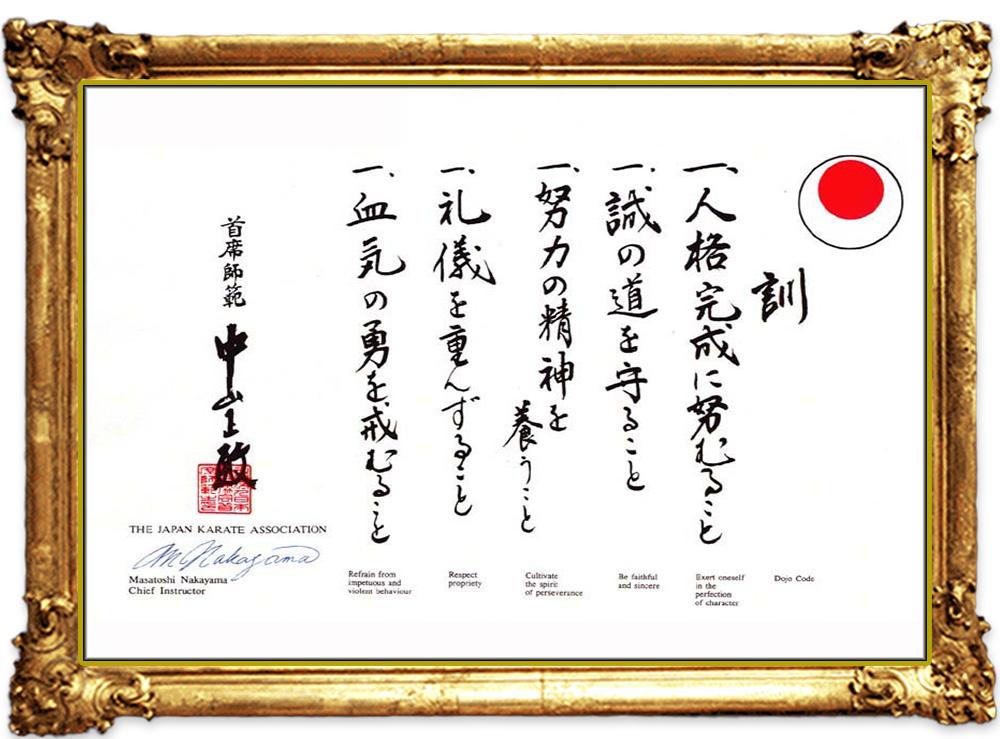 訓
一、人格完成に努むること
一、誠の道を守ること
一、努力の精神を
養うこと
一、礼儀を重んずること
一、血気の勇を戒むること
首席師範
中山正敏
THE JAPAN KARATE ASSOCIATION
M Nakayama
Masatoshi Nakayama
Chief Instructor
Dojo Code
Exert oneself
in the
perfection
of character
Be faithful
and sincere
Cultivate
the spirit
of perseverance
Respect
propriety
Refrain from
impetuous and
violent behaviour